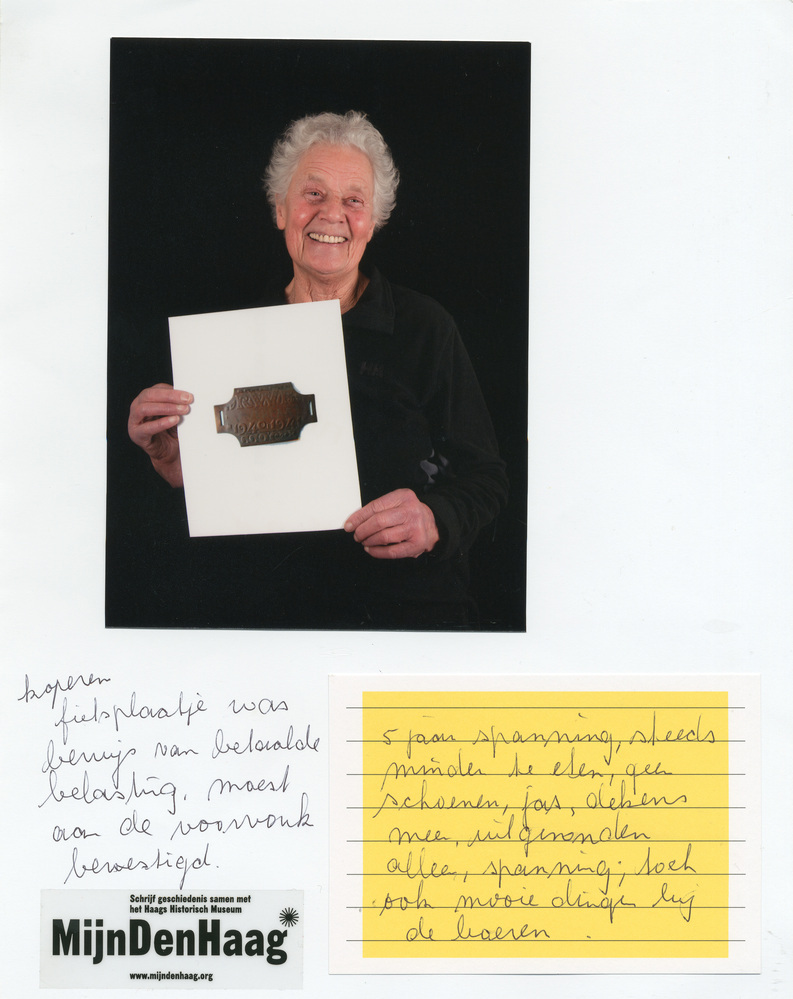 1940-1941
koperen
fietsplaatje was
bewijs van betaalde
belasting, moest
aan de voorvonk
bevestigd.
Schrijf geschiedenis samen met
het Haags Historisch Museum
MijnDenHaag
www.mijndenhaag.org
5 jaar spanning, steeds
minder te eten, geen
schoenen, jas, dekens
meer,
alleen, spanning; toch
ook mooie dingen bij
de boeren .